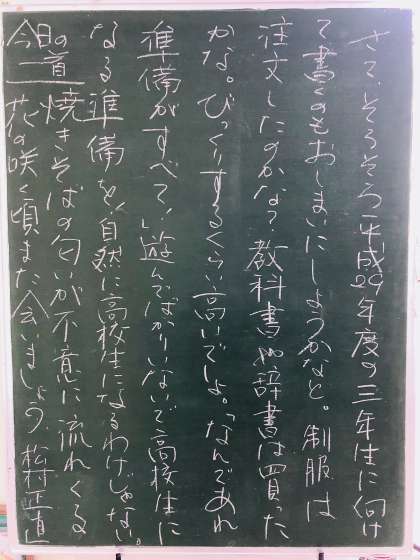 さて、そろそろ平成29年度の三年生に向け
て書くのもおしまいにしようかなと。制服は
注文したのかな?教科書や辞書は買った
かな。びっくりするくらい高いでしょ。「なんであれ
準備がすべて!」遊んでばかりいないで高校生に
なる準備を!自然に高校生になるわけじゃない。
今日の一首
焼きそばの匂いが不意に流れくる
花の咲く頃また会いましょう 松村正直